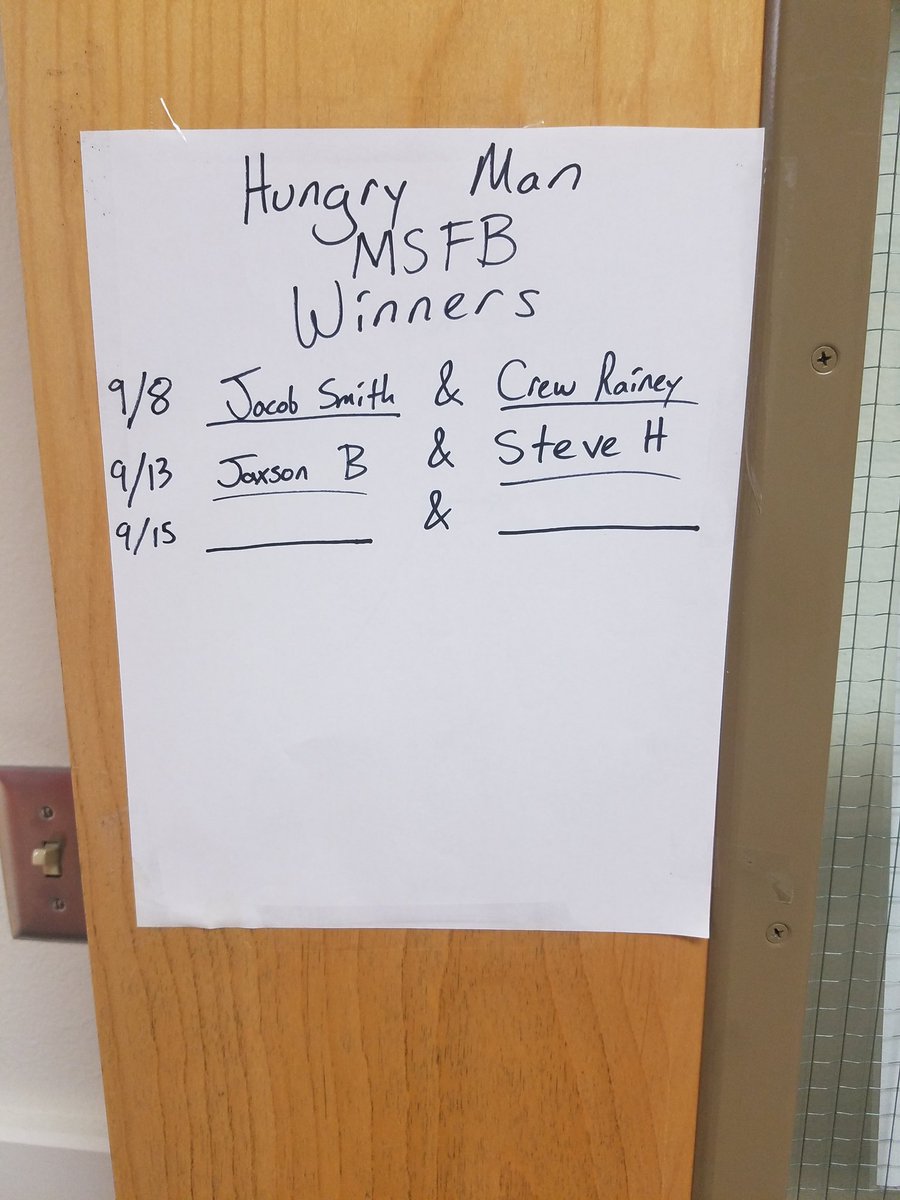 Hungry Man
MSFB
Winners
9/8 Jacob Smith & Crew Rainey
9/13 Jaxson B & Steve H
9/15 &